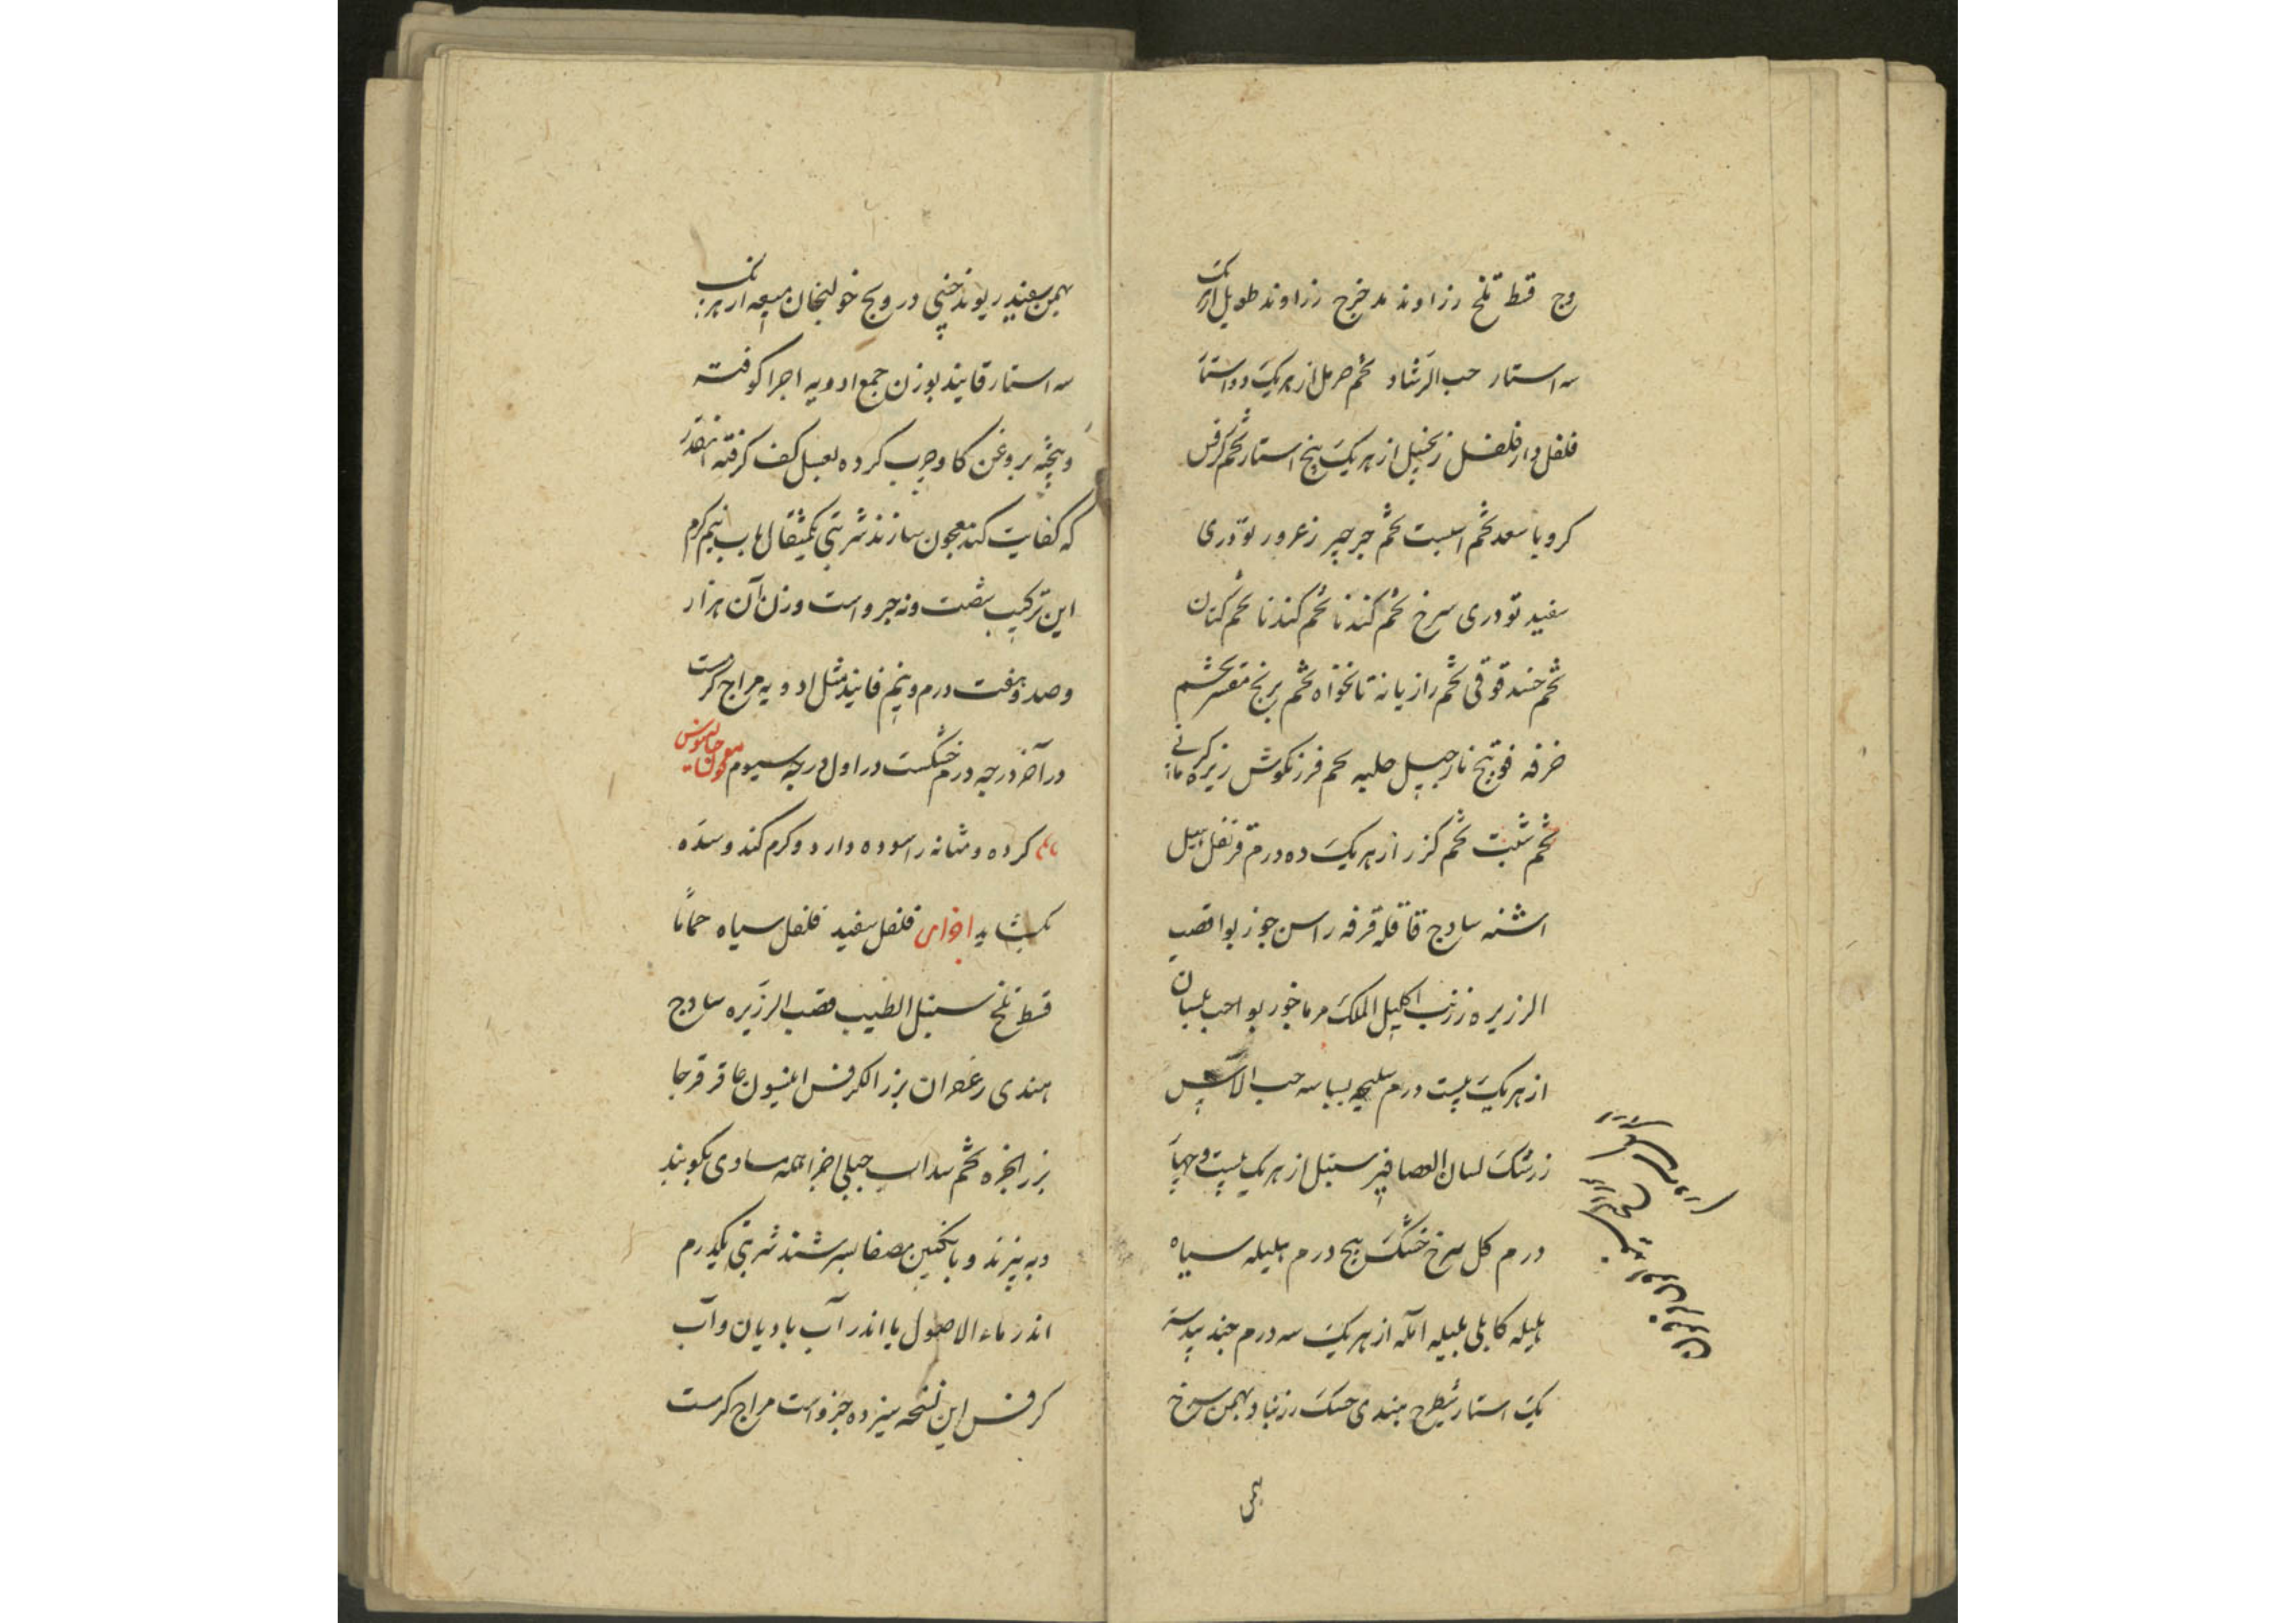 وج قسط تلخ رزاوند مدخرج رزاوند طویل از هر یک
سه استار حب الرشاد تخم حرمل از هر یک دو استار
فلفل دار فلفل زنجبیل از هر یک پنج استار تخم کرفس
کرویا سعد تخم اسبست تخم جرجیر زعرور تودری
سفید تودری سرخ تخم کندنا تخم کندنا تخم کتان
تخم حندقوقی تخم رازیانه نانخواه تخم برنج مقشر تخم
خرفه فوتنج نارجیل حلبه تخم فرزنکوش زیره کرمانی
تخم شبت تخم کزر از هر یک ده درم قرنفل هیل
اشنه سادج قاقله قرفه راسن جوز بوا قصب
الزریره زرنب اکلیل الملک مرماخور بوا حب بلسان
از هر یک بیست درم سلیخه بسباسه حب الآس
زرشک لسان العصافیر سنبل از هر یک بیست و چهار
درم کل سرخ خشک پنج درم هلیله سیاه
هلیله کابلی بلیله آمله از هر یک سه درم جند بیدستر
یک استار شیطرج هندی خسک زرنباد بهمن سرخ
بهمن
بهمن سفید ریوند چینی درونج خولنجان میعه از هر یک
سه استار فانید بوزن جمع ادویه اجزا کوفته
و بیخته بروغن کاو چرب کرده بعسل کف کرفته انقدر
که کفایت کند معجون سازند شربتی یکمثقال با آب نیم کرم
این ترکیب شصت و نه جزو است وزن آن هزار
و صد و هفت درم و نیم فانید مثل ادویه مزاج کرمست
در آخر درجه دوم خشکست در اول درجه سیوم معجون جالینوس
کرده و مثانه را سوده دارد و کرم کند و سده
بکشاید اجزای فلفل سفید فلفل سیاه حماما
قسط تلخ سنبل الطیب قصب الزریره سادج
هندی زعفران بزر الکرفس انیسون عاقرقرحا
بزر انجره تخم سداب جبلی اجزا جمله مساوی بکوبند
و به بیزند و بانکبین مصفا بسرشند شربتی یکدرم
اندر ماء الاصول یا اندر آب بادیان و آب
کرفس این نسخه سیزده جزو است مزاج کرمست